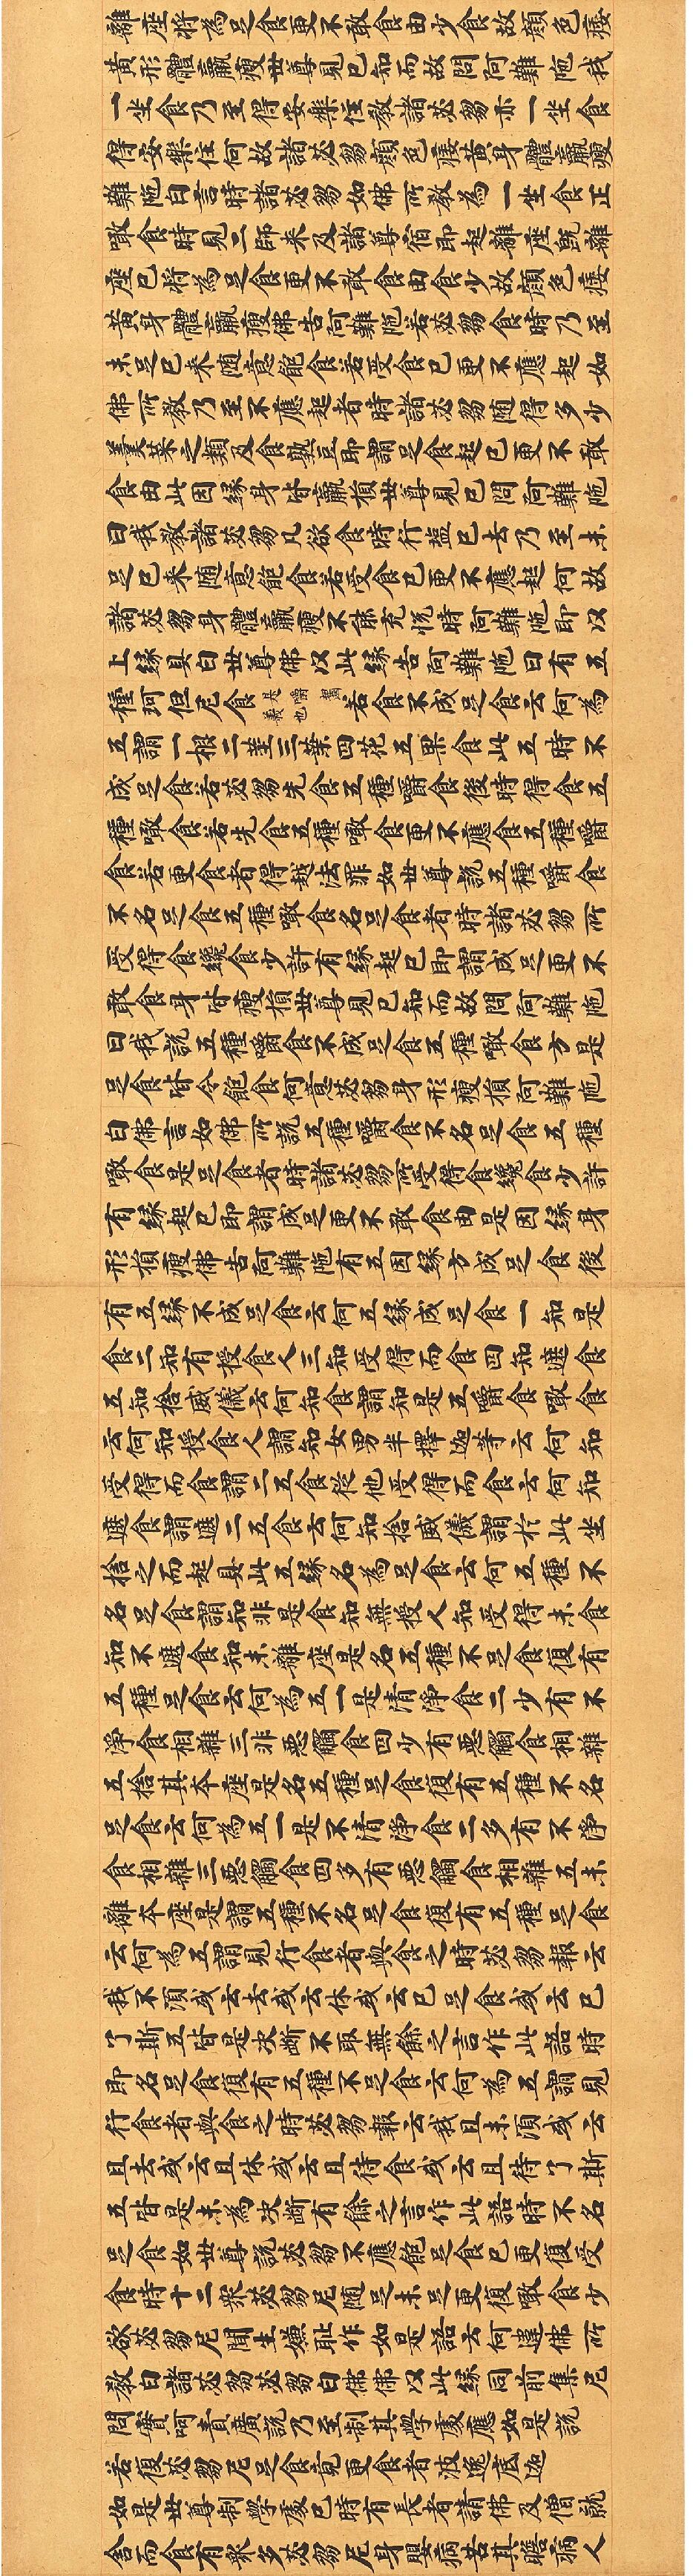 離座將為足食更不敢食由少食故顏色痿
黃形體羸瘦世尊見已知而故問阿難陁我
一坐食乃至得安樂住教諸苾芻亦一坐食
得安樂住何故諸苾芻顏色痿黃身體羸瘦
難陁白言時諸苾芻如佛所教為一坐食正
噉食時見二師來及諸尊宿即起離座既離
座已將為足食更不敢食由食少故顏色痿
黃身體羸瘦佛告阿難陁若苾芻食時乃至
未足已來随意飽食若受食已更不應起如
佛所教乃至不應起者時諸苾芻随得多少
羹菜之類及食熟豆即謂足食起已更不敢
食由此因緣身皆羸損世尊見已問阿難陁
曰我教諸苾芻凡欲食時行塩已去乃至未
足已來随意飽食若受食已更不應起何故
諸苾芻身體羸瘦不能充悅時阿難陁即以
上緣具白世尊佛以此緣告阿難陁曰有五
種珂但尼食是嚼齧義也若食不成足食云何為
五謂一根二莖三葉四花五果食此五時不
成足食若苾芻先食五種嚼食後時得食五
種噉食若先食五種噉食更不應食五種嚼
食若更食者得越法罪如世尊說五種嚼食
不名足食五種噉食名足食者時諸苾芻所
受得食纔食少許有緣起已即謂成足更不
敢食身皆瘦損世尊見已知而故問阿難陁
曰我說五種嚼食不成足食五種噉食方是
足食皆令飽食何意苾芻身形瘦損阿難陁
白佛言如佛所說五種嚼食不名足食五種
噉食是足食者時諸苾芻所受得食纔食少許
有緣起已即謂成足更不敢食由是因緣身
形損瘦佛告阿難陁有五因緣方成足食後
有五緣不成足食云何五緣成足食一知是
食二知有授食人三知受得而食四知遮食
五知捨威儀云何知食謂知是五嚼食噉食
云何知授食人謂知女男半擇迦等云何知
受得而食謂二五食從他受得而食云何知
遮食謂遮二五食云何知捨威儀謂於此坐
捨之而起具此五緣名為足食云何五種不
名足食謂知非是食知無授人知受得未食
知不遮食知未離座是名五種不足食復有
五種足食云何為五一是清淨食二少有不
淨食相雜三非惡觸食四少有惡觸食相雜
五捨其本座是名五種足食復有五種不名
足食云何為五一是不清淨食二多有不淨
食相雜三惡觸食四多有惡觸食相雜五未
離本座是謂五種不名足食復有五種足食
云何為五謂見行食者與食之時苾芻報云
我不須或云去或云休或云已足食或云已
了斯五皆是決斷不取無餘之言作此語時
即名足食復有五種不足食云何為五謂見
行食者與食之時苾芻報云我且未須或云
且去或云且休或云且待食或云且待了斯
五皆是未為決斷有餘之言作此語時不名
足食如世尊說苾芻不應飽足食已更復受
食時十二衆苾芻尼随足未足更復噉食少
欲苾芻尼聞生嫌耻作如是語云何違佛所
教白諸苾芻苾芻白佛佛以此緣同前集尼
問實呵責廣說乃至制其學處應如是說
若復苾芻尼足食竟更食者波逸底迦
如是世尊制學處已時有長者請佛及僧就
舍而食有衆多苾芻尼身嬰病苦其瞻病人